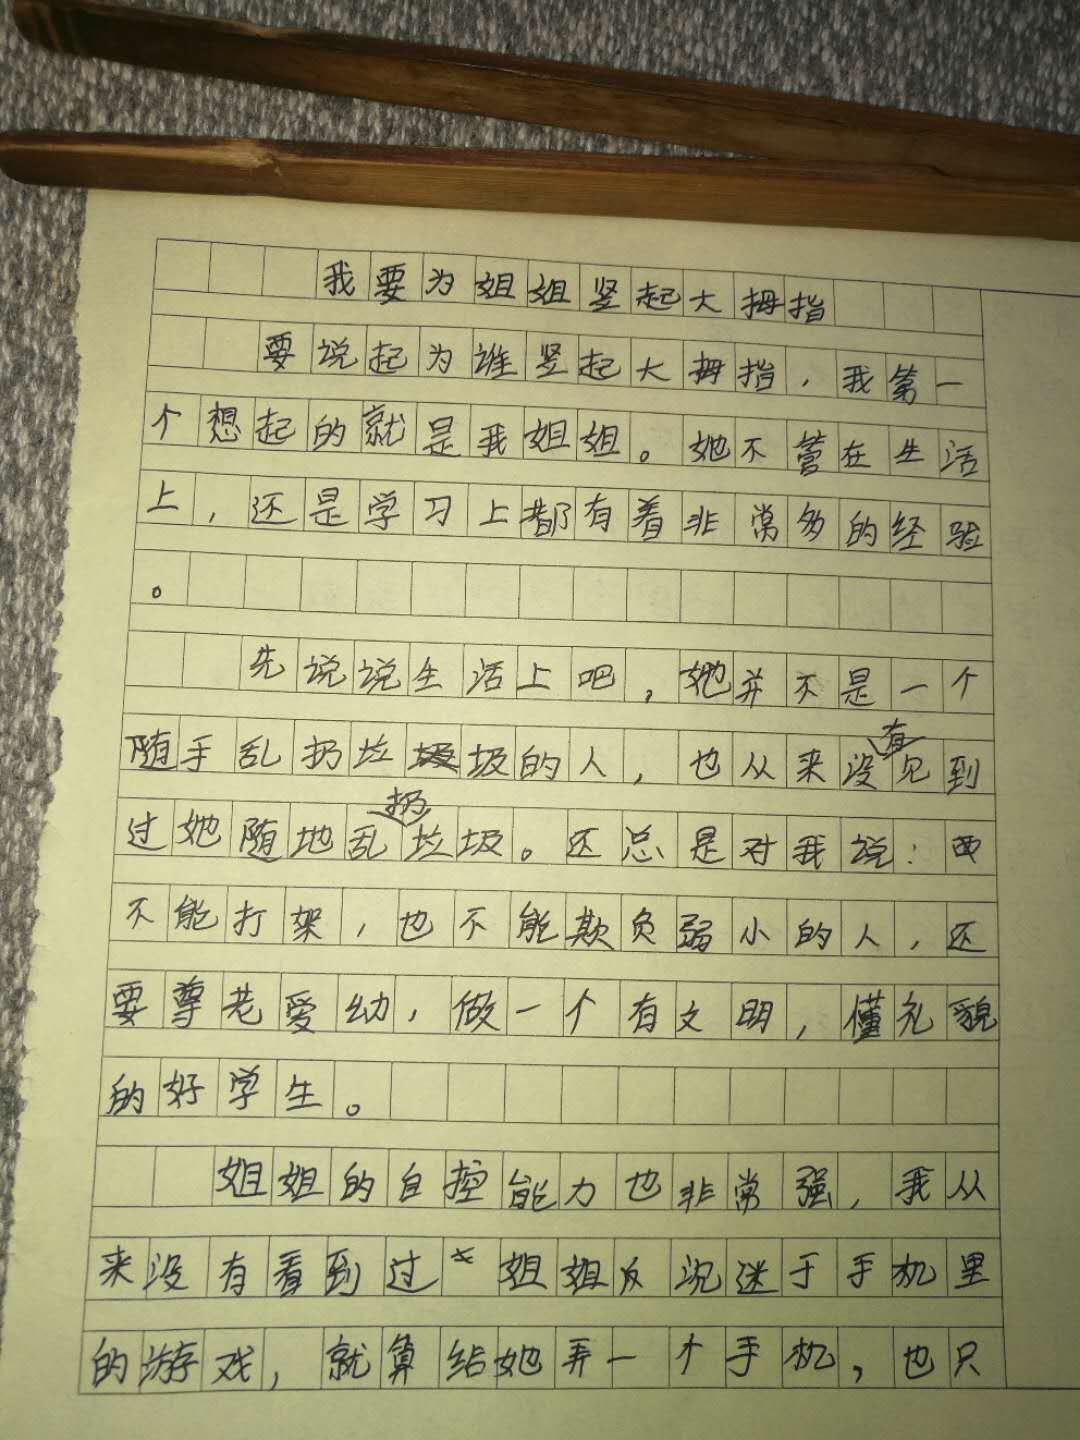 我要为姐姐竖起大拇指
要说起为谁竖起大拇指，我第一
个想起的就是我姐姐。她不管在生活
上，还是学习上都有着非常多的经验
。
先说说生活上吧，她并不是一个
随手乱扔垃圾的人，也从来没有见到
过她随地乱扔垃圾。还总是对我说：
不能打架，也不能欺负弱小的人，还
要尊老爱幼，做一个有文明，懂礼貌
的好学生。
姐姐的自控能力也非常强，我从
来没有看到过姐姐沉迷于手机里
的游戏，就算给她弄一个手机，也只